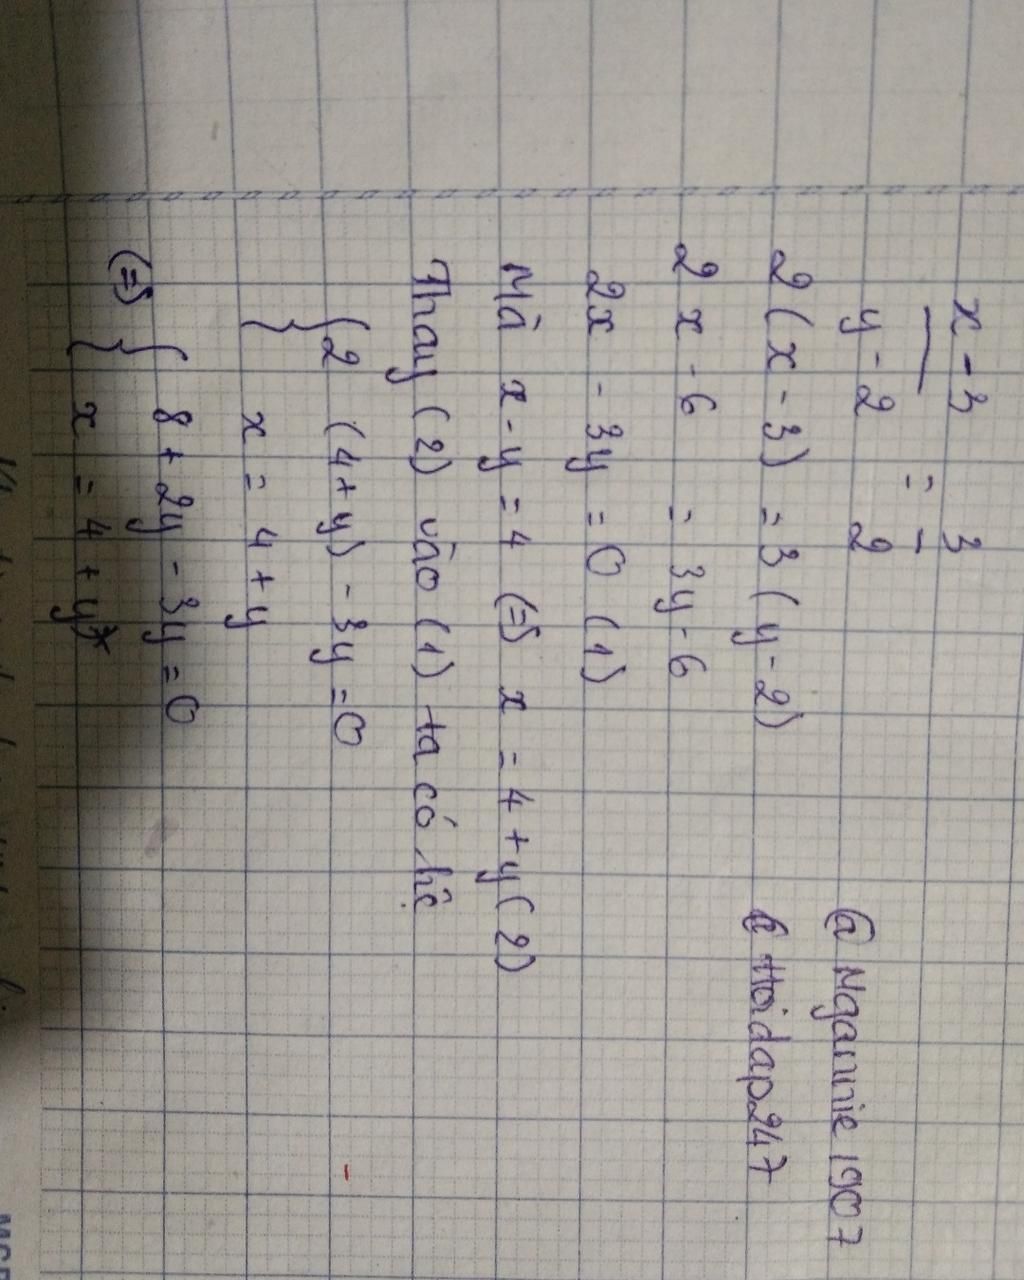 x - 3
y - 2
= 3
2
2 (x - 3) = 3 (y - 2)
2 x - 6 = 3y - 6
2x - 3y = 0 (1)
Mà x - y = 4 (=) x = 4 + y (2)
Thay (2) vào (1) ta có hệ
{ 2 (4 + y) - 3y = 0
x = 4 + y
(=) { 8 + 2y - 3y = 0
x = 4 + y
@ Ngannie 1907
@ Hoidap247